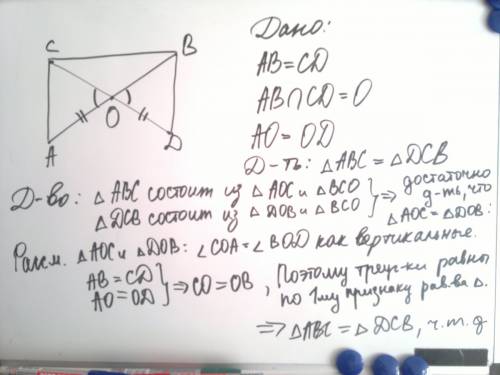 C
B
O
A
D
Дано:
AB=CD
AB∩CD=O
AO=OD
Д-ть: △ABC=△DCB
Д-во: △ABC состоит из △AOC и △BCO
△DCB состоит из △DOB и △BCO
} ⇒ достаточно
д-ть, что
△AOC=△DOB:
Рассм. △AOC и △DOB: ∠COA=∠BOD как вертикальные.
AB=CD
AO=OD
} ⇒ CO=OB, Поэтому треуг-ки равны
по 1му признаку рав-ва △.
⇒ △ABC=△DCB, ч.т.д